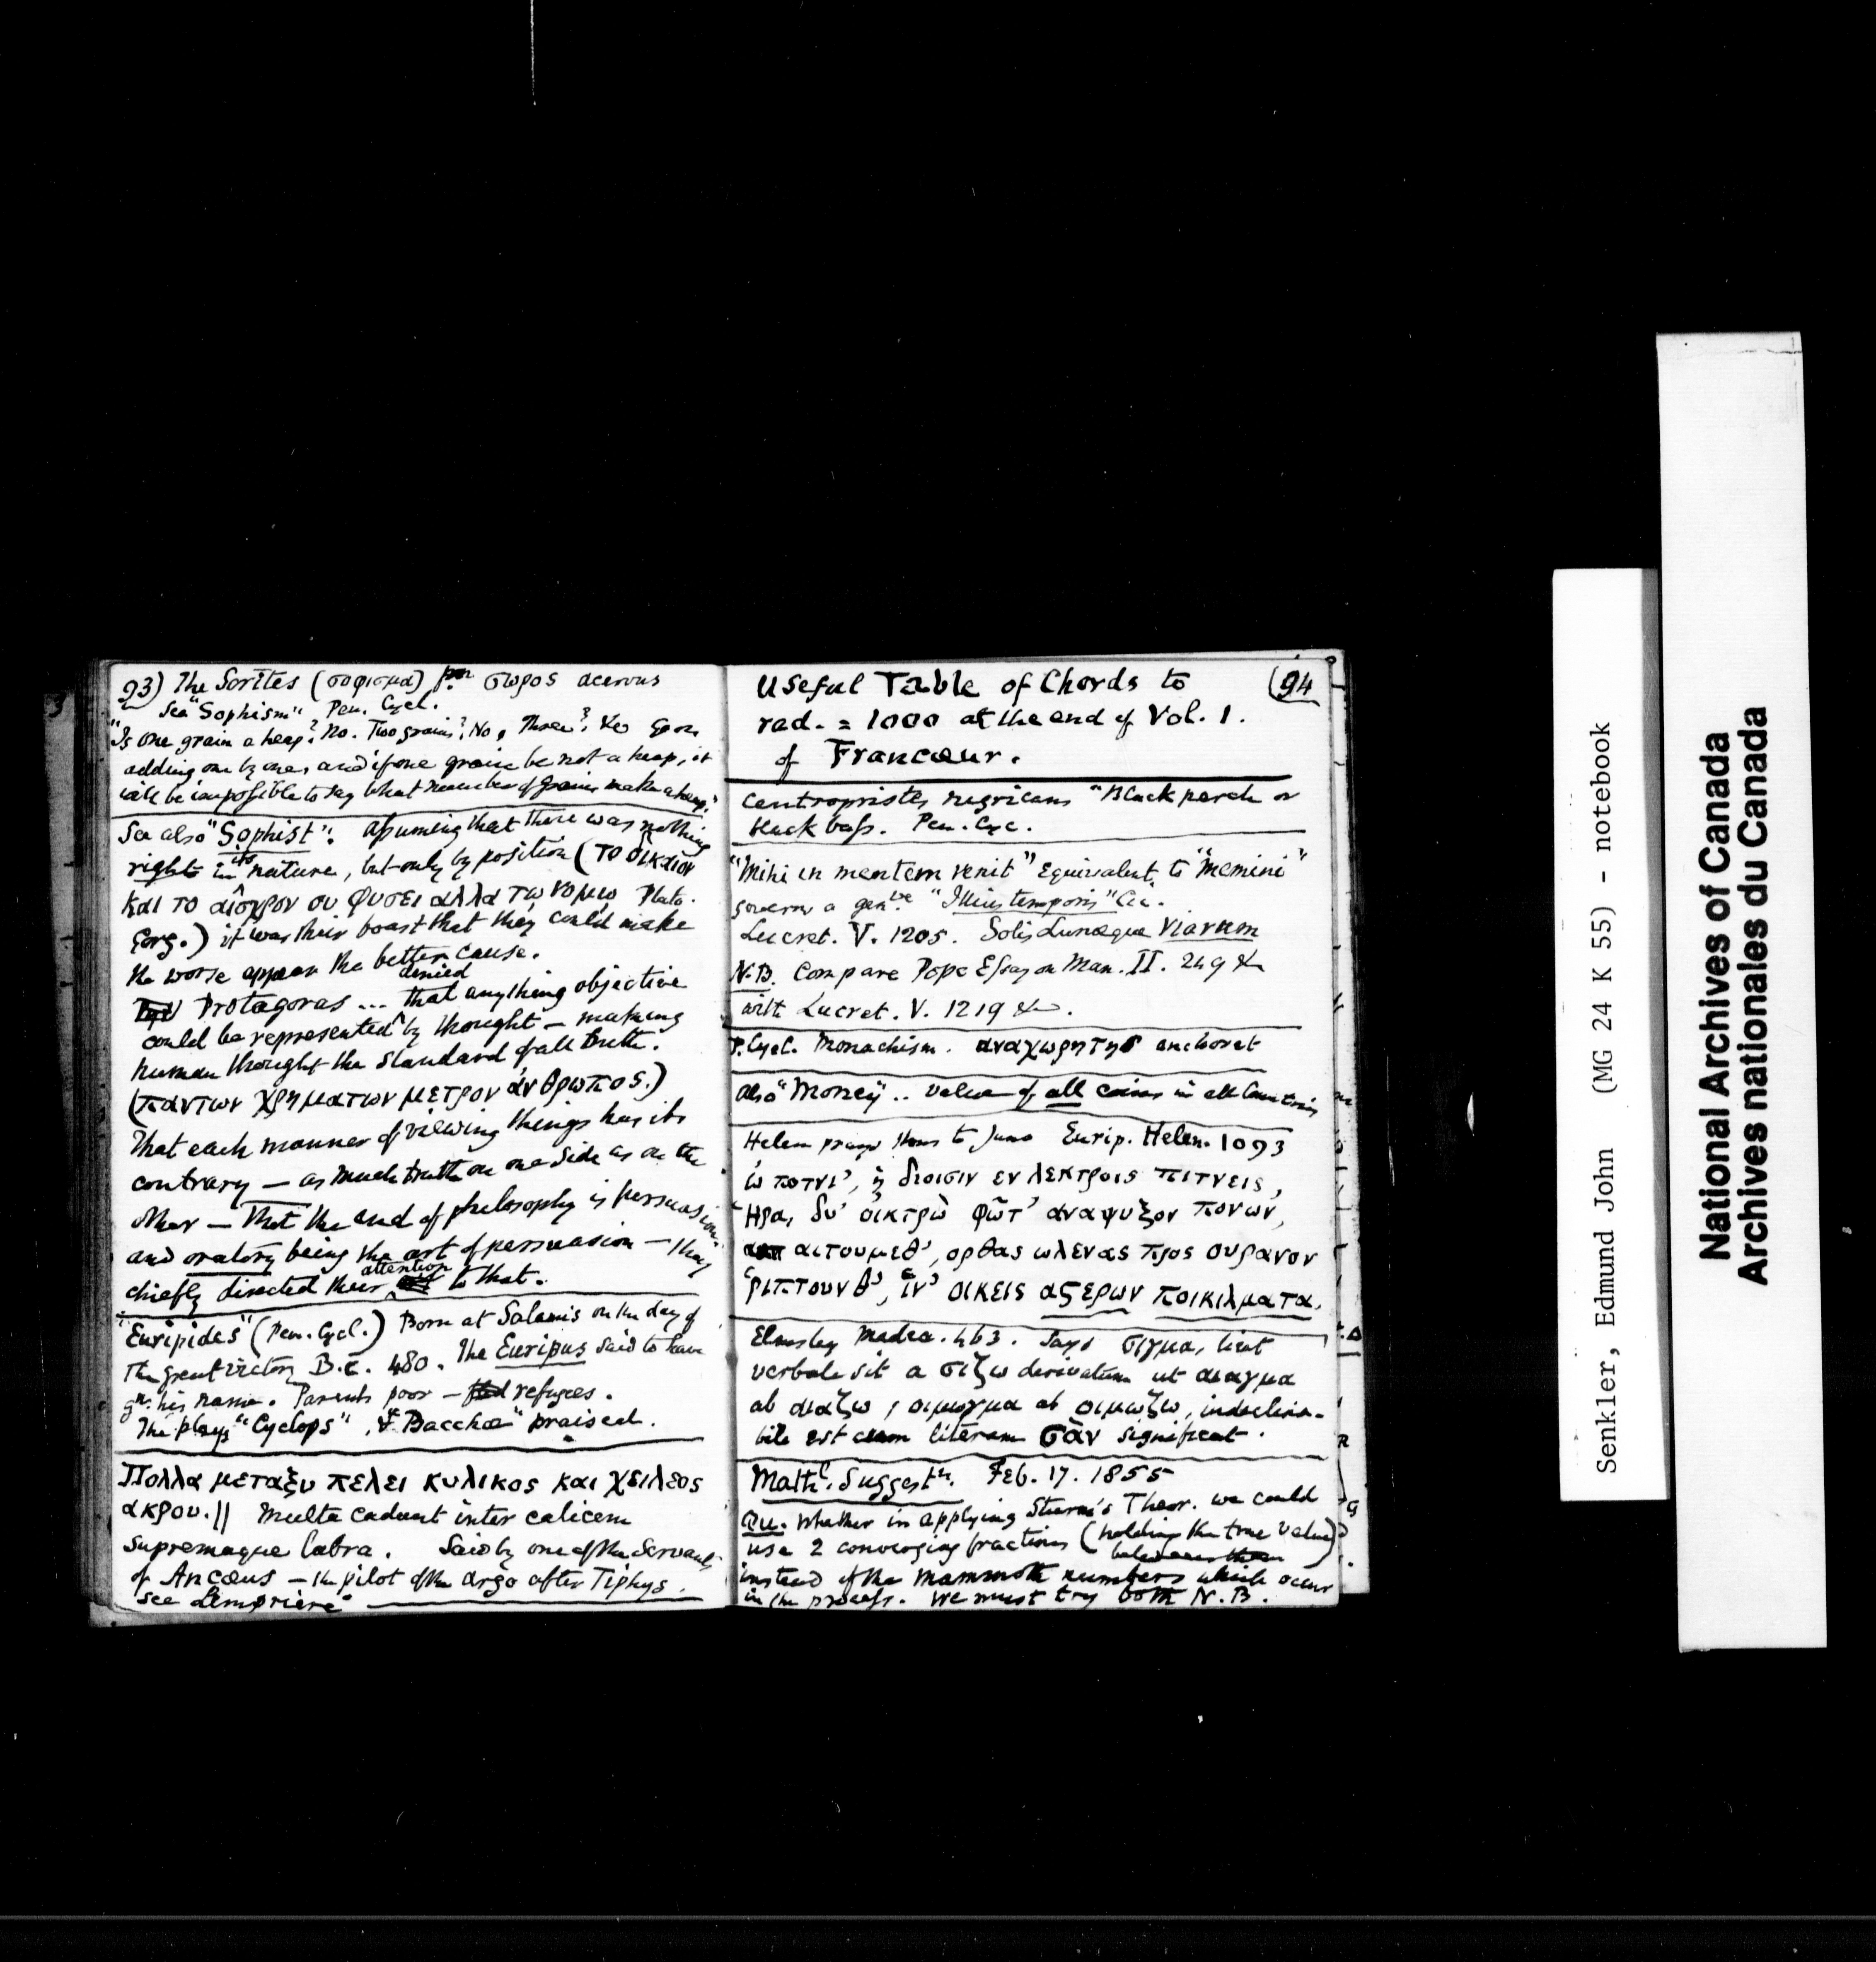 93) The Sorites (σοφισμα) σωρος acervus
See "Sophism" Pen. Cycl.
"Is one grain a heap? No. Two grains? No, Three? &c Go on
adding one by one, and if one grain be not a heap, it
will be impossible to say what number of grains make a heap."
See also "Sophist": assuming that there was nothing
right in its nature, but only by position (το δικαιον
και το αισχρον ου φυσει αλλα τω νομω Plato.
Gorg.) it was their boast that they could make
the worse appear the better cause.
Protagoras ... denied that anything objective
could be represented by thought – making
human thought the standard of all truth.
(παντων χρηματων μετρον άνθρωπος.)
That each manner of viewing things has its
contrary – as much truth on one side as on the
other – That the end of philosophy is persuasion
and oratory being the art of persuasion – they
chiefly directed their attention to that.
"Euripides" (Pen. Cycl.) Born at Salamis on the day of
The great victory B.C. 480. The Euripus said to have
gn. his name. Parents poor – refugees.
The plays "Cyclops", & "Bacchæ" praised.
Πολλα μεταξυ πελει κυλικος και χειλεος
ακρου. || Multa cadunt inter calicem
supremaque labra. Said by one of the servants
of Ancæus – the pilot of the Argo after Tiphys.
see Lempriere
Useful Table of Chords to (94
rad. = 1000 at the end of Vol. 1.
of Francœur.
Centropristes nigricans "Black perch or
black bass. Pen. Cyc.
"Mihi in mentem venit" Equivalent to "Memini"
governs a gentve "Illius temporis" Cic.
Lucret. V. 1205. Solis Lunæque viarum
N.B. Compare Pope Essay on Man. II. 249 &c
with Lucret. V. 1219 &c.
P. Cycl. Monachism. αναχωρητης anchoret
also "Money".. value of all coins in all Countries
Helen prays thus to Juno Eurip. Helen. 1093
ώ ποτνι', ή διοισιν εν λεκτροις πιτνεις,
Ἡρα, δυ' οἰκτρὼ φῶτ' ἀναψυξον πονων,
αιτουμεθ', ορθας ωλενας προς ουρανον
ῥιπτουνθ', ἱν' οικεις αςερων ποικιλματα.
Elmsley Medea. 463. says σιγμα, licet
verbale sit a σιζω derivatum ut αιαγμα
ab αιαζω, οιμωγμα ab οιμωζω, indeclina-
bile est cum literam σὰν significat.
Mathl. Suggestn. Feb. 17. 1855
Qu. Whether in applying Sturm's Theor. we could
use 2 converging fractions (holding the true value)
between them
instead of the mammoth numbers which occur
in the process. We must try both N.B.
Senkler, Edmund John (MG 24 K 55) - notebook
National Archives of Canada
Archives nationales du Canada